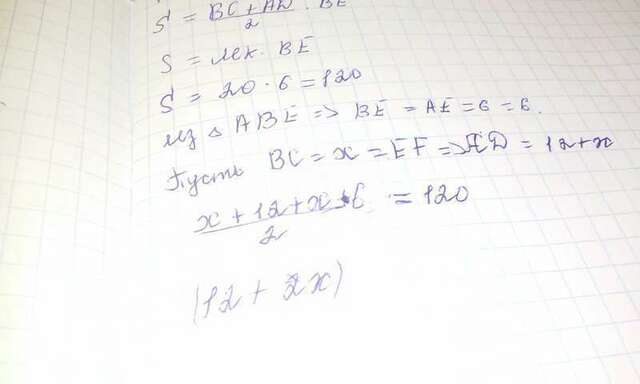 S = BC + AD / 2 · BE
S = MCK · BE
S = 20 · 6 = 120
Из △ ABE => BE = AE = 6 = 6.
Пусть BC = x = EF => AD = 12 + x
x + 12 + x · 6 / 2 = 120
(12 + 2x)